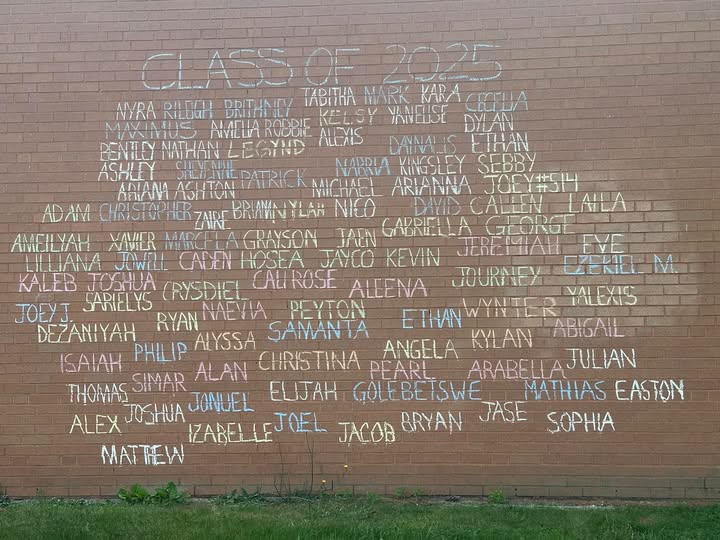 CLASS OF 2025
TABITHA MARK KARA CECELIA
NYRA RILEGH BRITHNEY KELSY YANELISE
MAXIMUS AMELIA ROBBIE ALEXIS DYLAN
BENTLEY NATHAN LEGYND DAYNALIS ETHAN
ASHLEY SHEYENNE PATRICK NABRIA KINGSLEY SEBBY
ARIANA ASHTON MICHAEL ARIANNA JOEY#514
ADAM CHRISTOPHER ZAIRE BRIAN NYLAH NICO DAVID CALLEN LAILA
AMEILYAH XAVIER MARCELA GRAYSON JAEN GABRIELLA GEORGE
LILLIANA JOWELL CADEN HOSEA JAYCO KEVIN JEREMIAH EVE
KALEB JOSHUA CRYSDIEL CALI ROSE ALEENA JOURNEY EZEKIEL M.
JOEY J. SARIELYS NAEVIA PEYTON WYNTER YALEXIS
DEZANIYAH RYAN ALYSSA SAMANTA ETHAN KYLAN ABIGAIL
ISAIAH PHILIP ALAN CHRISTINA ANGELA ARABELLA JULIAN
THOMAS SIMAR JONUEL ELIJAH GOLEBETSWE PEARL MATHIAS EASTON
ALEX JOSHUA IZABELLE JOEL JACOB BRYAN JASE SOPHIA
MATTHEW